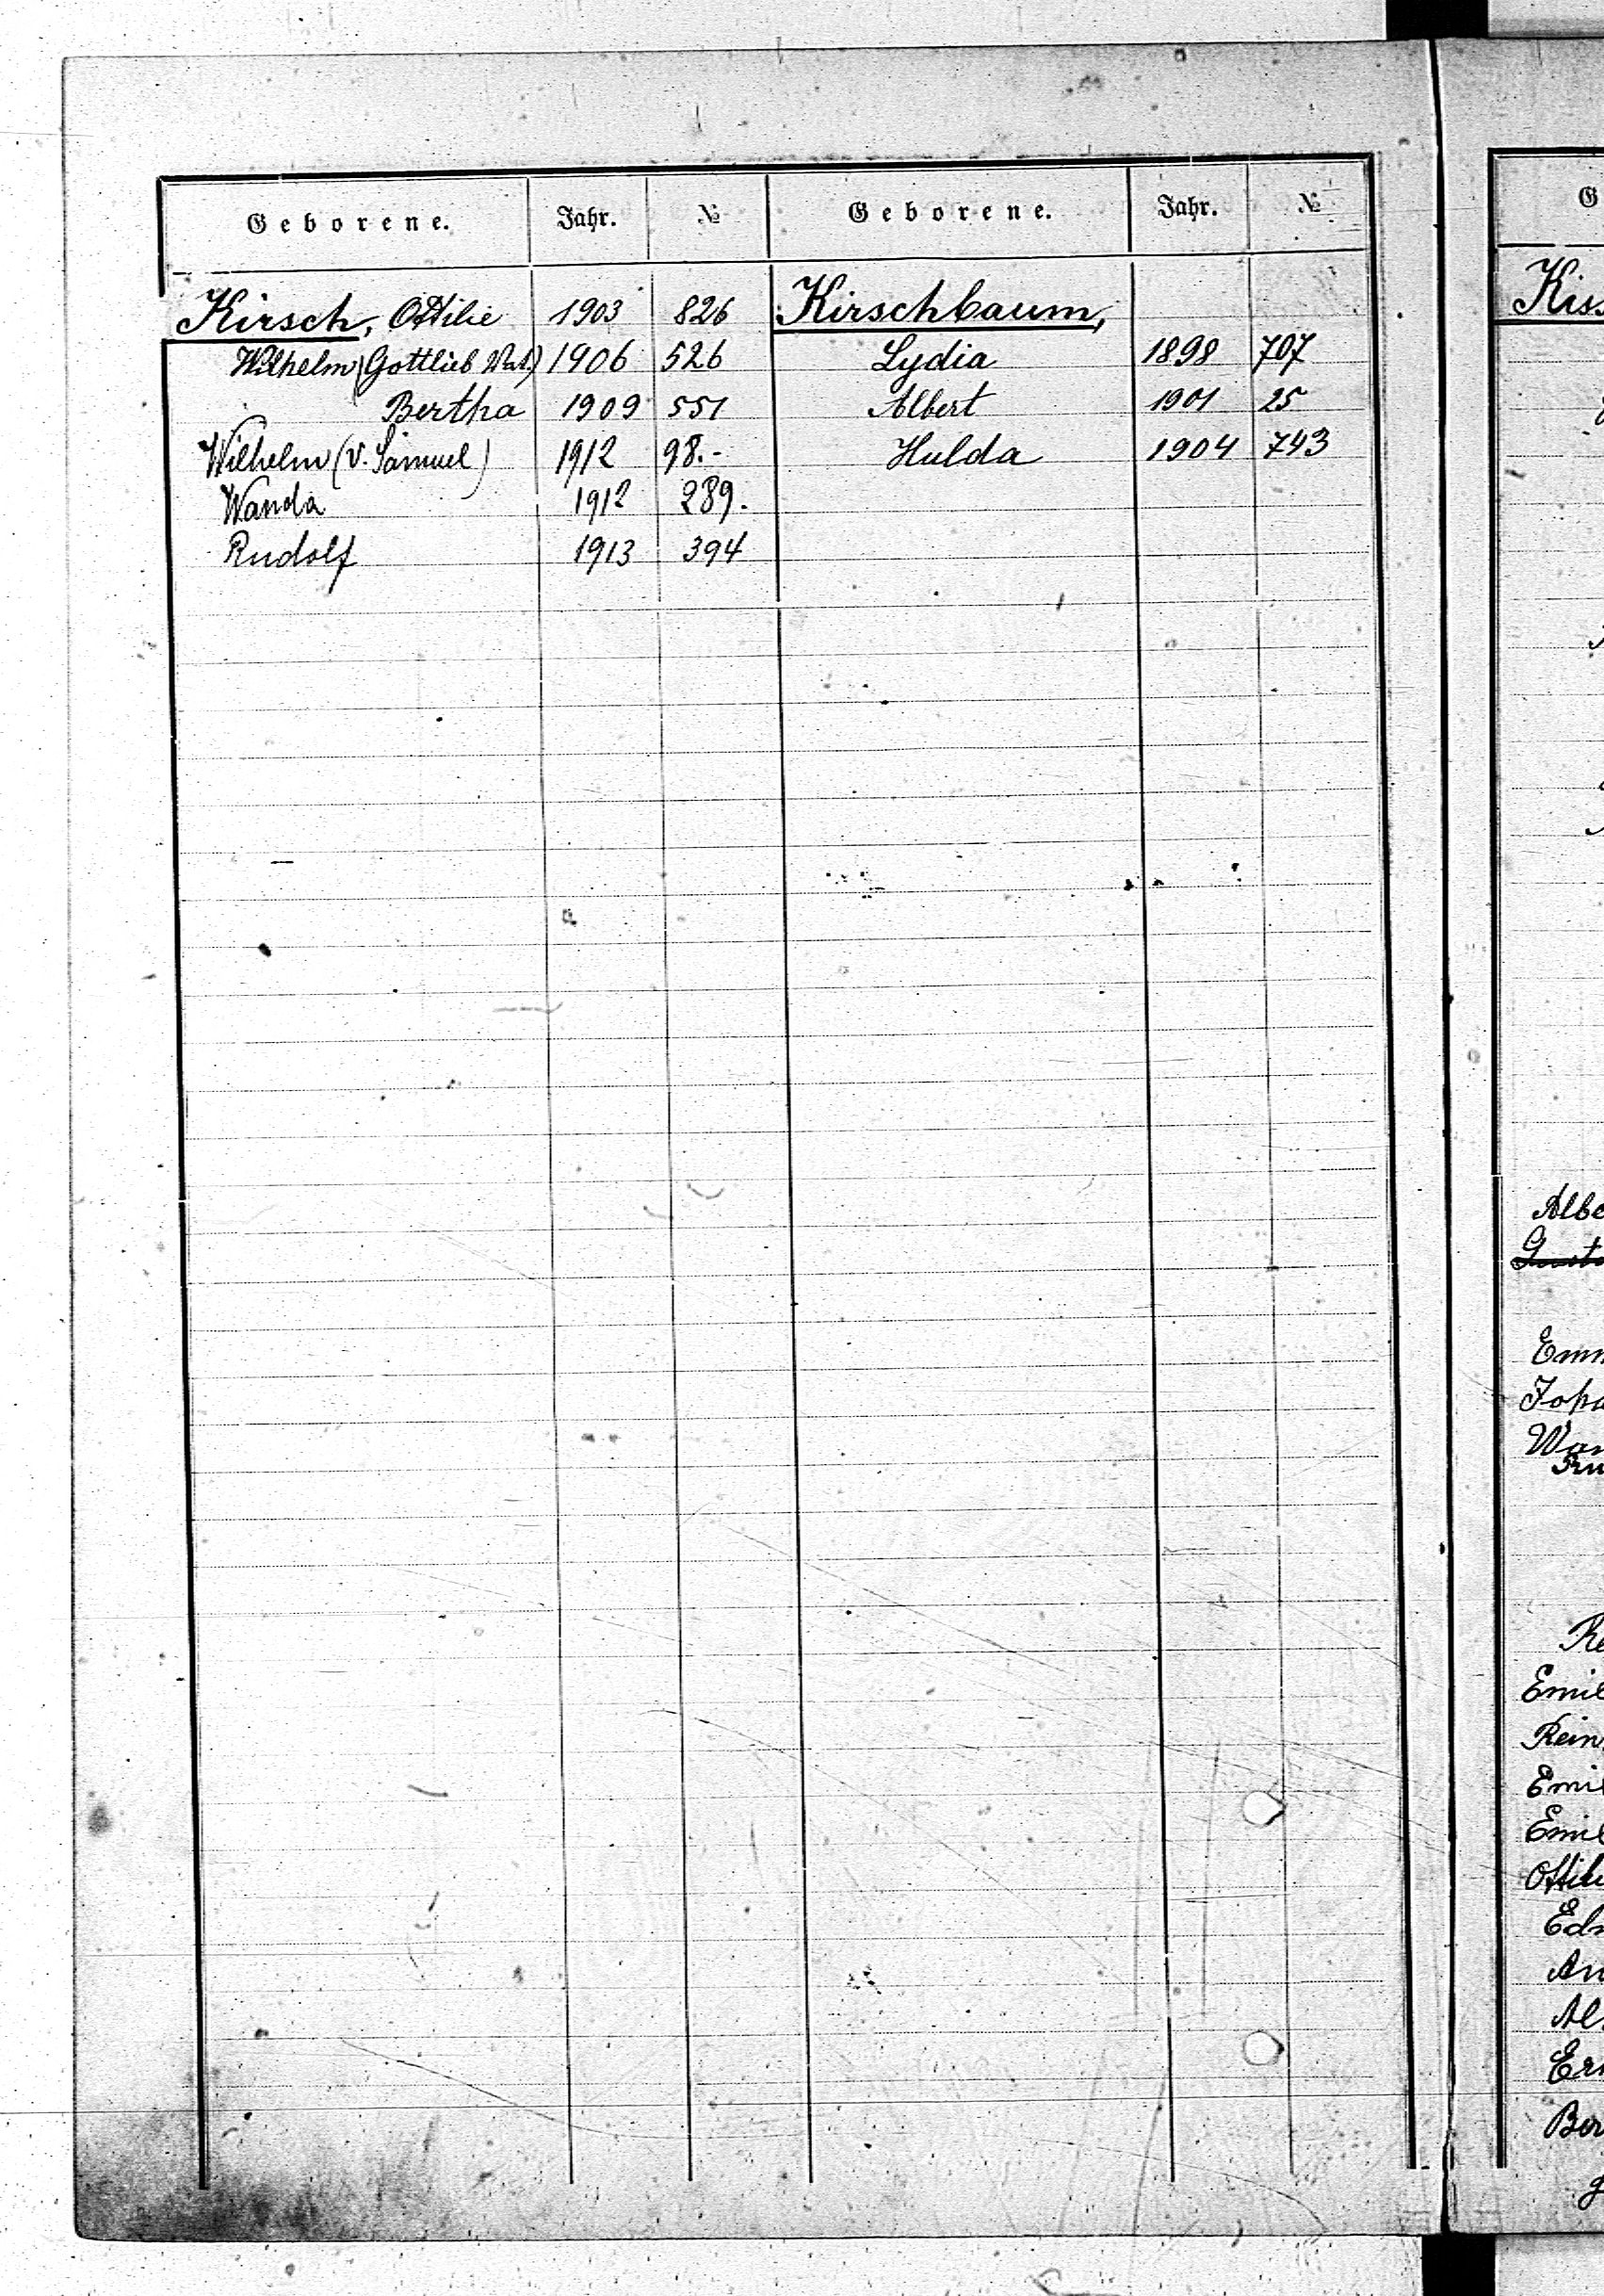 Geborene. Jahr. № Geborene. Jahr. №
Kirsch, Ottilie 1903 826
Wilhelm (Gottlieb 1906 526
Bertha 1909 551
Wilhelm (v. Samuel) 1912 98.-
Wanda 1912 289.
Rudolf 1913 394
Kirschbaum,
Lydia 1898 707
Albert 1901 25
Hulda 1904 743
G
Kiss
Albe
Emm
Joha
Wan
Ru
Re
Emil
Rein
Emil
Emil
Ottili
Edm
Al
Ern
Ber